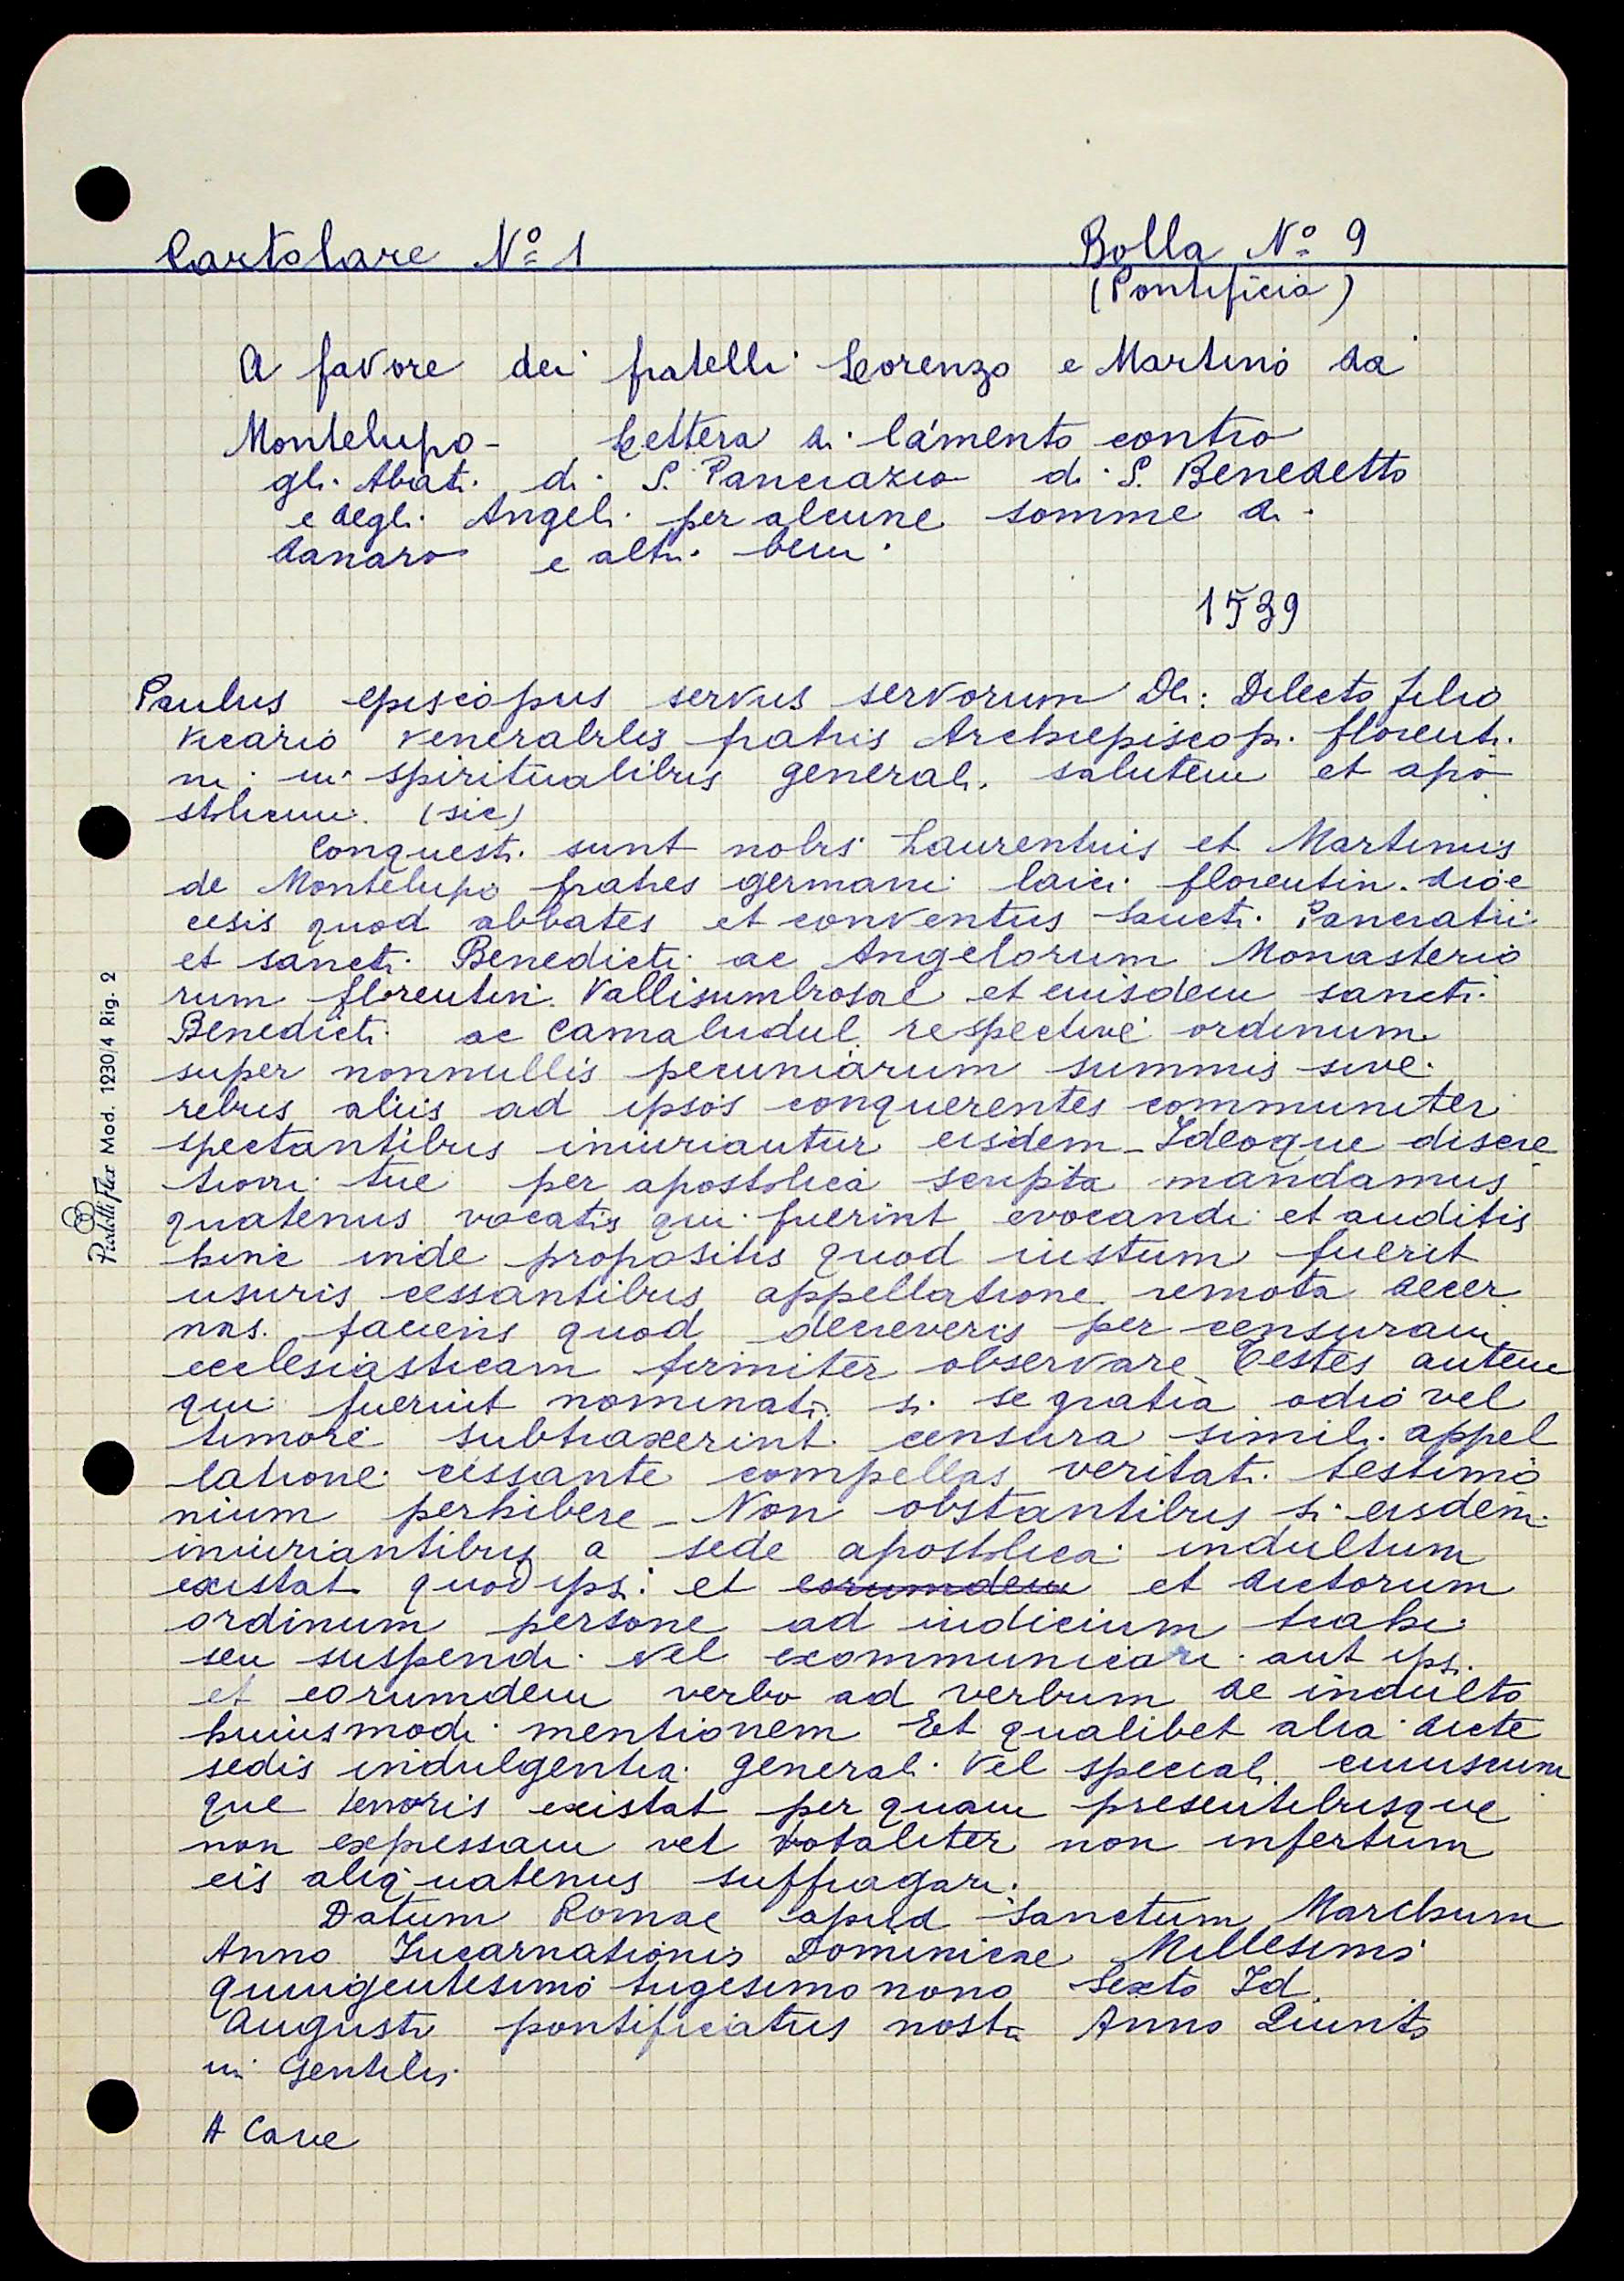 Cartolare Nº 1
Bolla Nº 9
(Pontificia)
A favore dei fratelli Lorenzo e Martino da
Montelupo - Lettera di lamento contro
gli Abati di S. Pancrazio di S. Benedetto
e degli Angeli per alcune somme di
danaro e altri beni.
1539
Paulus episcopus servus servorum Dei: Dilecto filio
vicario venerabilis fratris Archiepiscopi florenti
ni in spiritualibus generali salutem et apo
stolicum. (sic)
Conquesti sunt nobis Laurentius et Martinus
de Montelupo fratres germani laici florentin. dioe
cesis quod abbates et conventus Sancti Pancratii
et sancti Benedicti ac Angelorum Monasterio
rum florentin. Vallisumbrosae et eiusdem sancti
Benedicti ac Camaldul. respective ordinum
super nonnullis pecuniarum summis sive
rebus aliis ad ipsos conquerentes communiter
spectantibus iniuriantur eisdem - Ideoque discre
tioni tue per apostolica scripta mandamus
quatenus vocatis qui fuerint evocandi et auditis
hinc inde propositis quod iustum fuerit
usuris cessantibus appellatione remota decer
nas. faciens quod decreveris per censuram
ecclesiasticam firmiter observare Testes autem
qui fuerint nominati si se gratia odio vel
timore subtraxerint censura simili appel
latione cessante compellas veritati testimo
nium perhibere - Non obstantibus si eisdem
iniuriantibus a sede apostolica indultum
existat quod ipsi et eorumdem et dictorum
ordinum persone ad iudicium trahi
seu suspendi vel excommunicari aut ipsi
et eorumdem verbo ad verbum de indulto
huiusmodi mentionem Et qualibet alia dicte
sedis indulgentia generali vel speciali cuiuscum
que tenoris existat per quam presentibusque
non expressam vel totaliter non insertum
eis aliquatenus suffragari.
Datum Romae apud Sanctum Marchum
Anno Incarnationis Dominicae Millesimo
quingentesimo trigesimo nono Sexto Id.
Augusti pontificatus nostri Anno Quinto
Gentilis
A Cave
Mod. 1230/4 Rig. 2